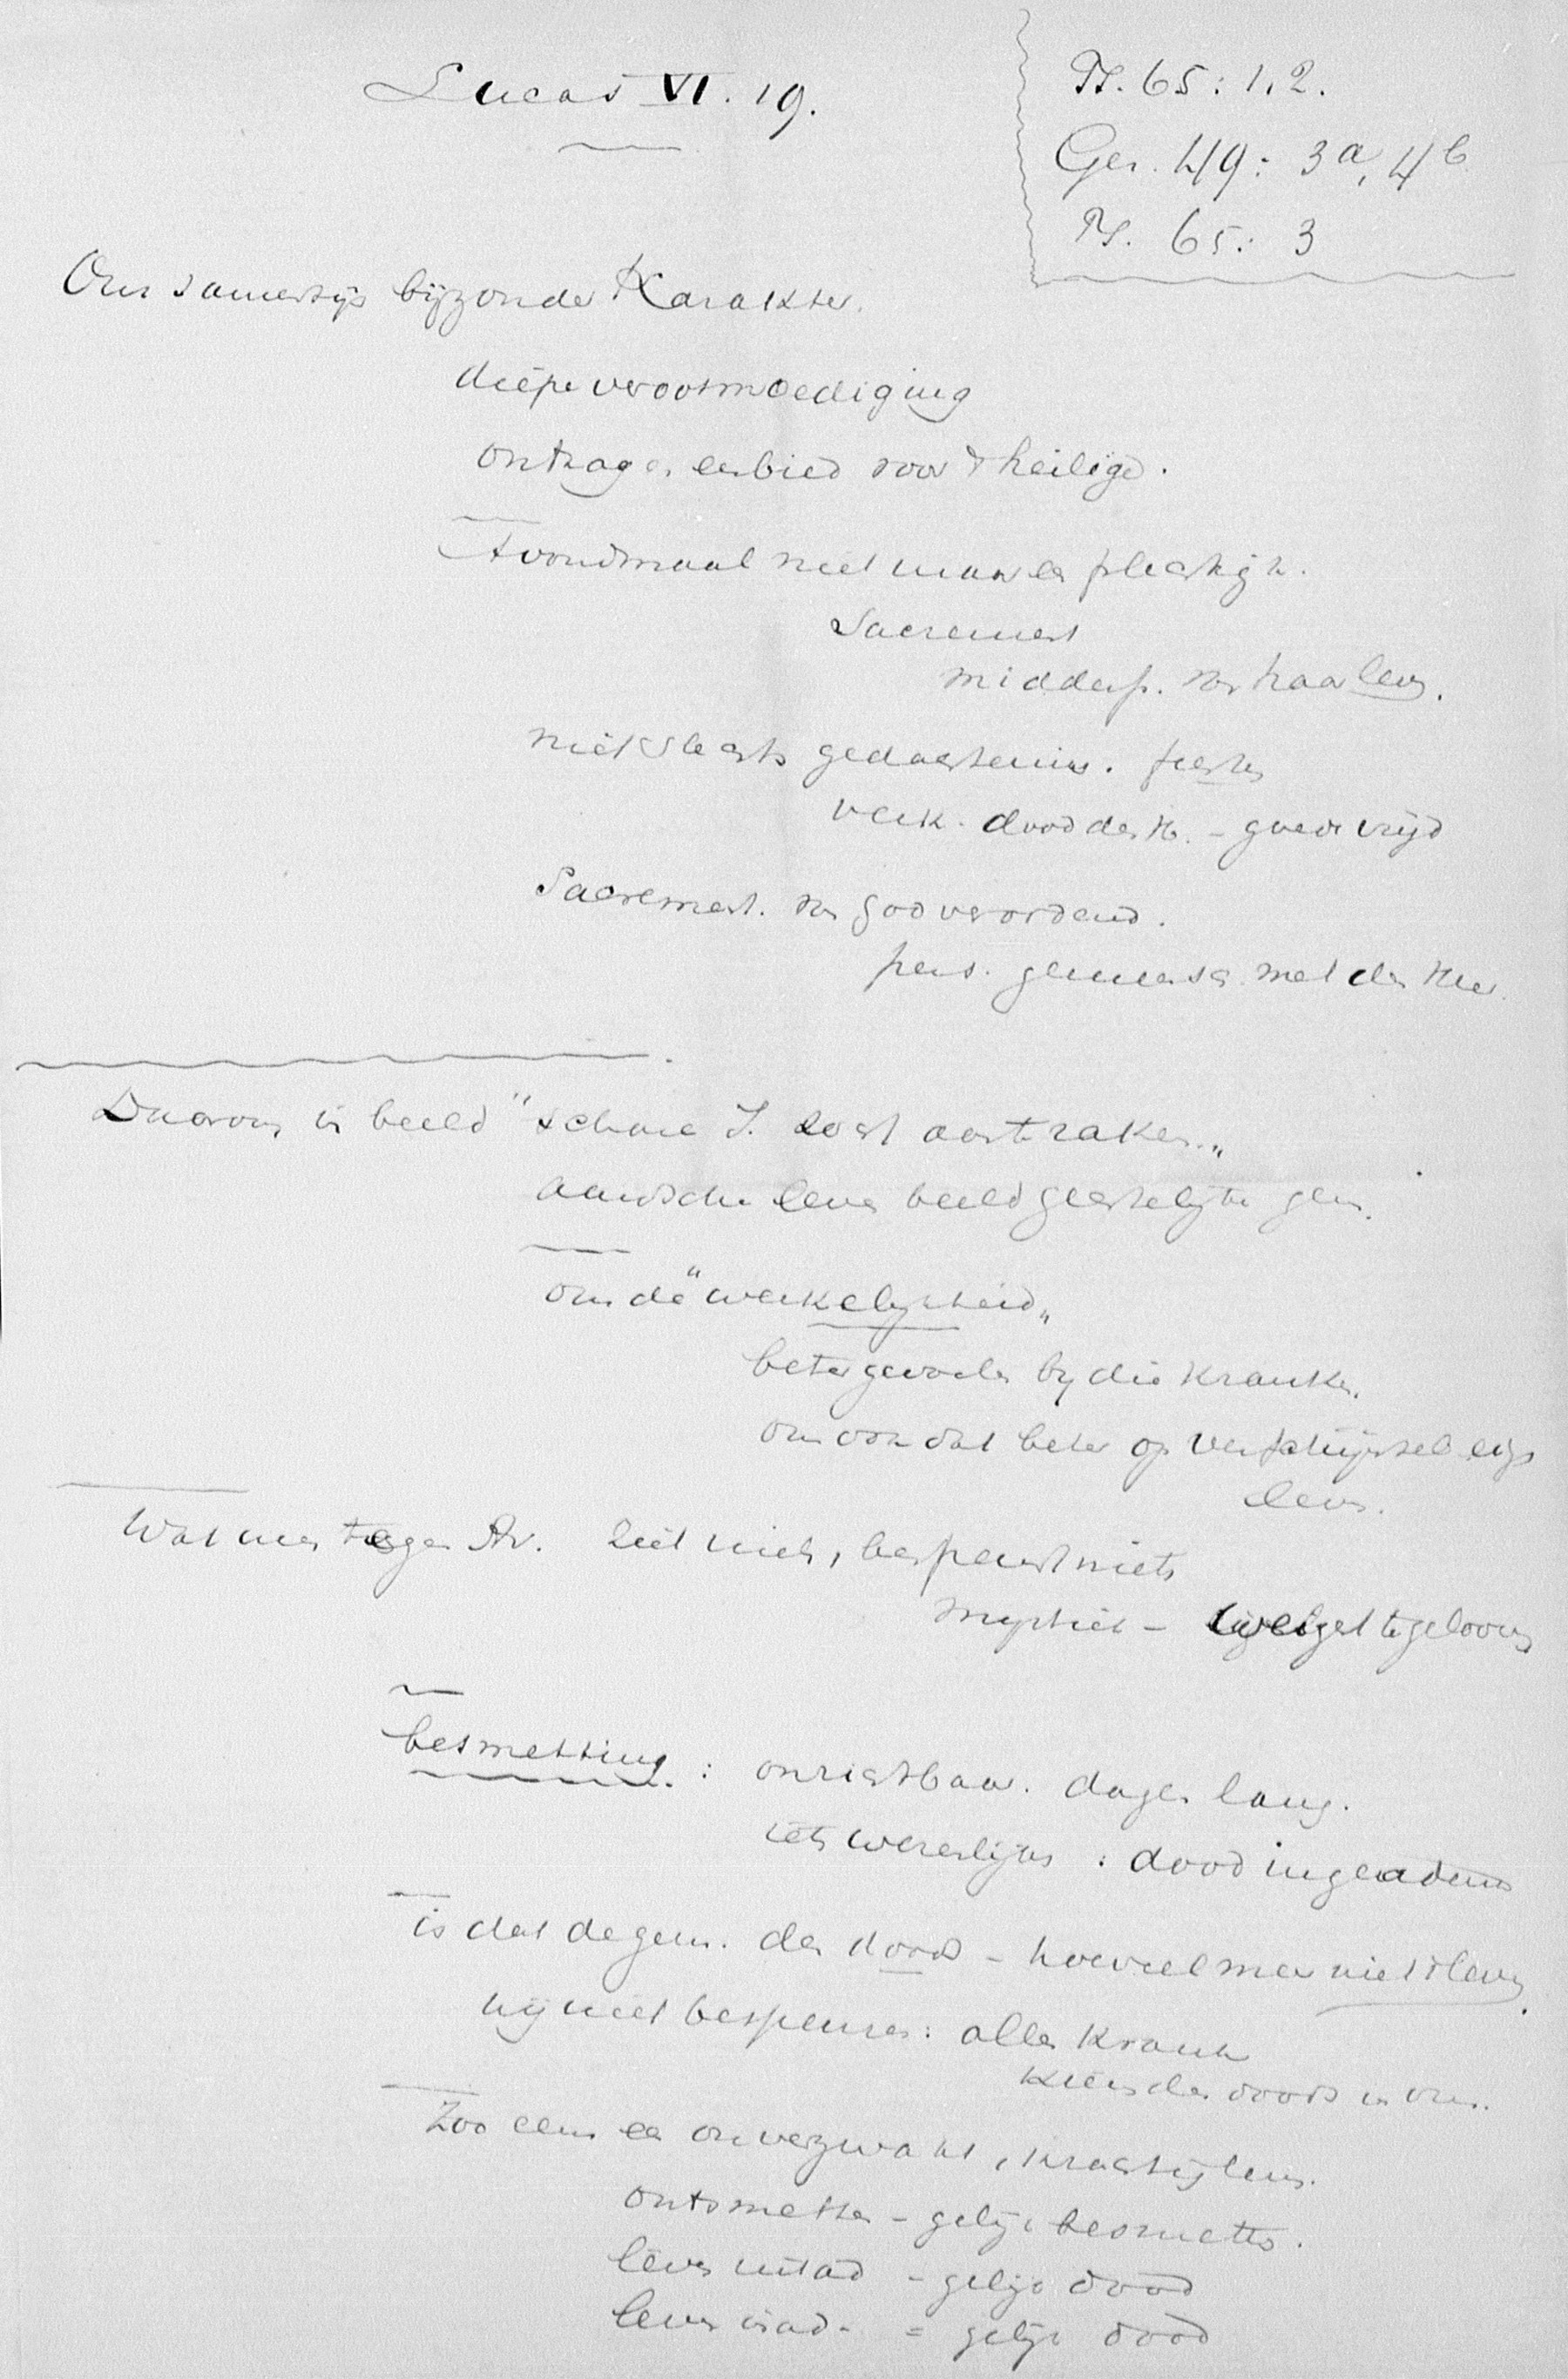 Lucas VI. 19.
Ps. 65: 1, 2.
Gez. 49: 3a, 4b
Ps. 65: 3
Ons samenzijn bijzonder Karakter.
diepe verootmoediging
ontzag en eerbied voor 't heilige.
Avondmaal niet maar een plechtigh.
Sacrament
middelp. van haar leven.
niet slechts gedachtenis. feesten
verk. dood des H. -
Sacrament. van God verordend.
pers. gemeensch. met den Heer.
Daarom is beeld "schare J. zocht aan te raken„
aardsche leven beeld geestelijke gem.
om de "werkelijkheid„
beter geworden bij die kranken.
om ook dat beter op
leven.
Wat men tegen Av. ziet niets, bespeurt niets
mystiek - weigert te gelooven
besmetting: onzichtbaar. dagen lang.
iets wezenlijks: dood ingeademd
is dat de gem. des doods - hoeveel meer niet 't leven.
wij niet bespeuren: allen krank
kiem des doods in ons.
Zoo eens een onverzwakt, krachtig leven.
ontsmetten - gelijk besmetten.
leven uitad - gelijk dood
leven inad. = gelijk dood